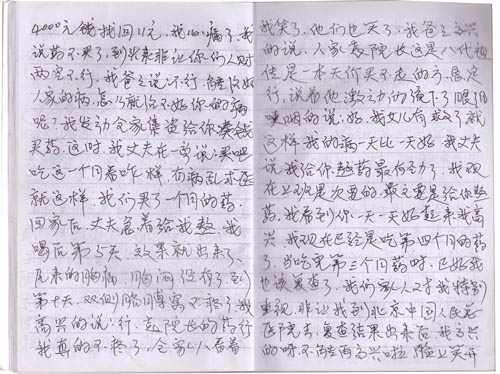 4000元钱找回11元，我心痛了，我
说药不买了，到头来非让你们人财
两空不行，我爸爸说不行，能治好
人家的病，怎么就治不好你的病
呢？我发动全家集资给你凑钱
买药。这时，我丈夫在一旁说：买吧
吃这一个月看咋样，有病乱求医
就这样，我们买了一个月的药，
回家后，丈夫急着给我熬，我
喝后第5天，效果就出来了，
原来的胸痛，胸闷没有了，到
第十天，双侧 不疼了，我
高兴的说：行，赵院长的药行
我真的不疼了，全家人看着
我笑了，他们也笑了，我爸爸高兴
的说，人家赵院长这是八代祖
传是一本天价买不走的方，愿定
行，说着他激动的流下了眼泪
哽咽的说：好，我女儿有救了就
这样我的病一天比一天好，我丈夫
说我给你熬药最有劲了，我现
在上班是次要的，最主要是给你熬
药，我看到你一天一天好起来我高
兴，我现在已经是吃第四个月的药
了，当吃完第三个月药时，已如我
也该复查了，我们家人又才我特别
重视，非让我到北京中国人民
医院去，复查结果出来后，我高兴
的呀，不能再高兴啦，脸上笑开